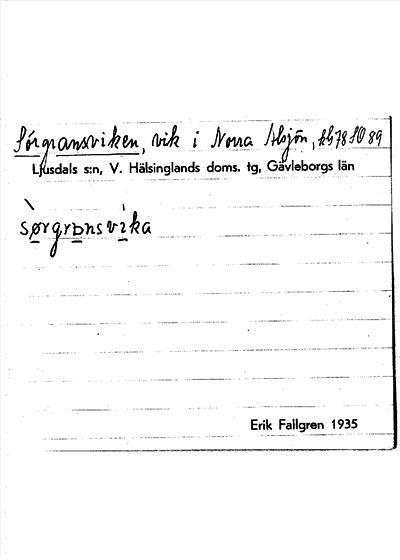 Sörgransviken, vik i Norra Alsjön, kbl 78 SO 89
Ljusdals s:n, V. Hälsinglands doms. tg, Gävleborgs län
sørgransvika
Erik Fallgren 1935